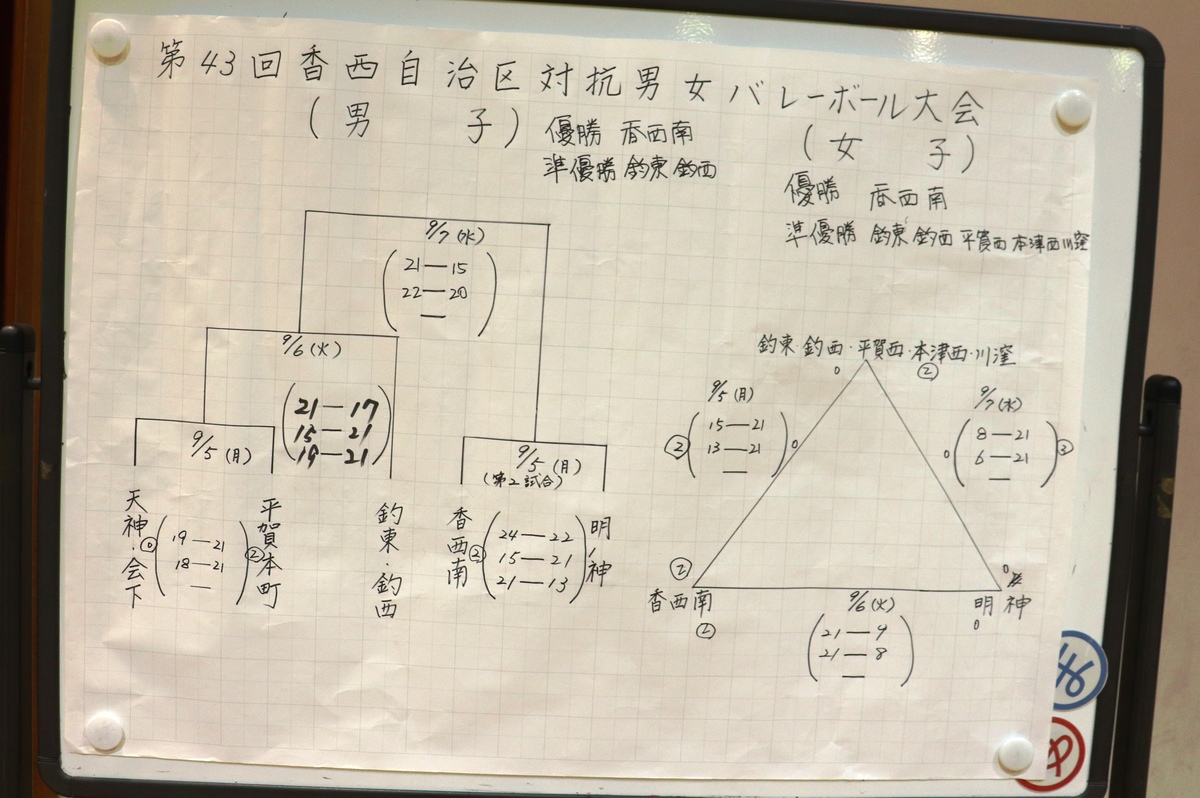 第43回香西自治区対抗男女バレーボール大会
(男 子)
優勝 香西南
準優勝 釣東 釣西
9/7(水)
21―15
22―20
―
9/6(火)
21―17
15―21
19―21
9/5(月)
天神・会下
⓪
19―21
18―21
―
②
平賀本町
釣東・釣西
9/5(月)
(第2試合)
香西南
②
24―22
15―21
21―13
明神
(女 子)
優勝 香西南
準優勝 釣東 釣西 平賀西 本津西 川窪
釣東・釣西・平賀西・本津西・川窪
0
②
9/5(月)
②
15―21
13―21
―
0
9/7(水)
0
8―21
6―21
―
②
香西南
②
9/6(火)
21―9
21―8
―
0
明神
0